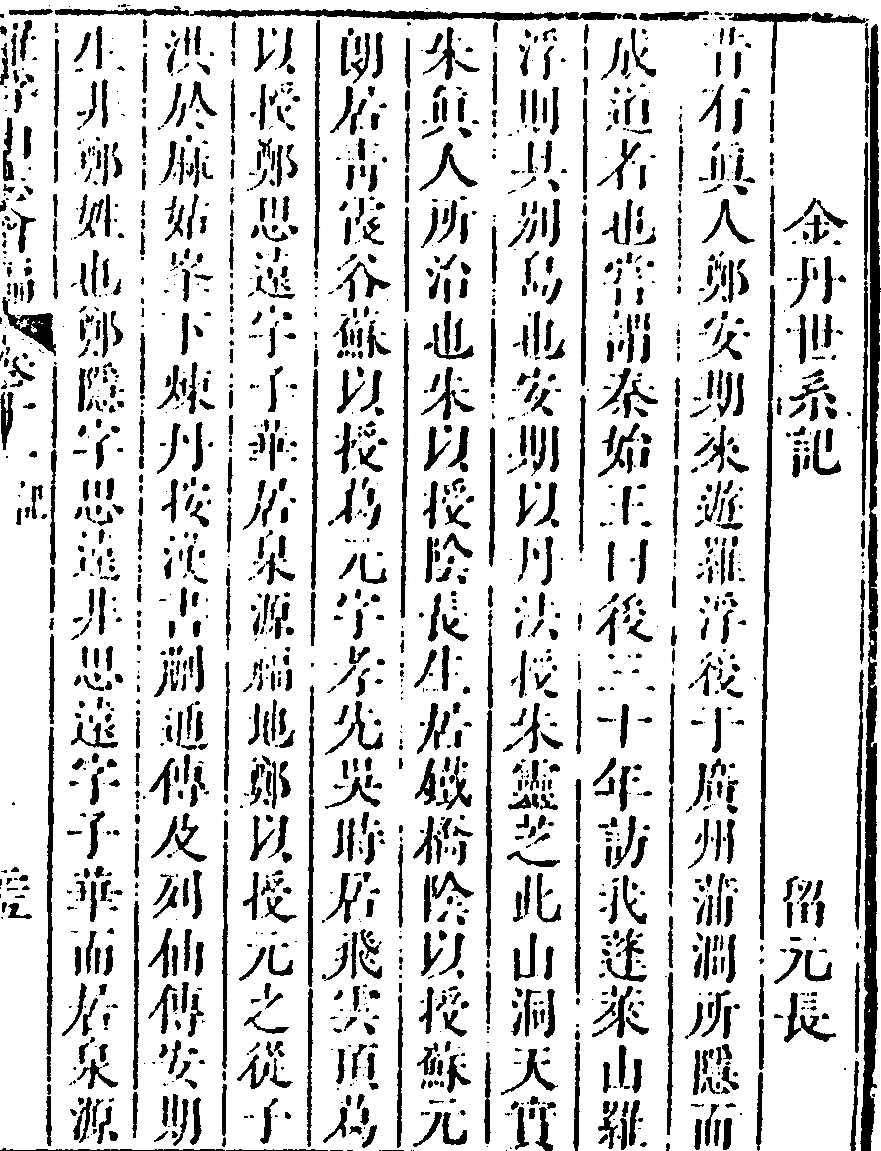 金丹世系記 留元長
昔有眞人鄭安期來遊羅浮後于廣州蒲澗所隱而
成道者也嘗謂秦始王曰後三十年訪我蓬萊山羅
浮則其別島也安期以丹法授朱靈芝此山洞天實
朱眞人所治也朱以授陰長生居鐵橋陰以授蘇元
朗居青霞谷蘇以授葛元字孝先吳時居飛雲頂葛
以授鄭思遠字子華居泉源福地鄭以授元之從子
洪於麻姑峯下煉丹按漢書蒯通傳及列仙傳安期
生非鄭姓也鄭隱字思遠非思遠字子華而居泉源
羅浮山志會編 卷十一 記